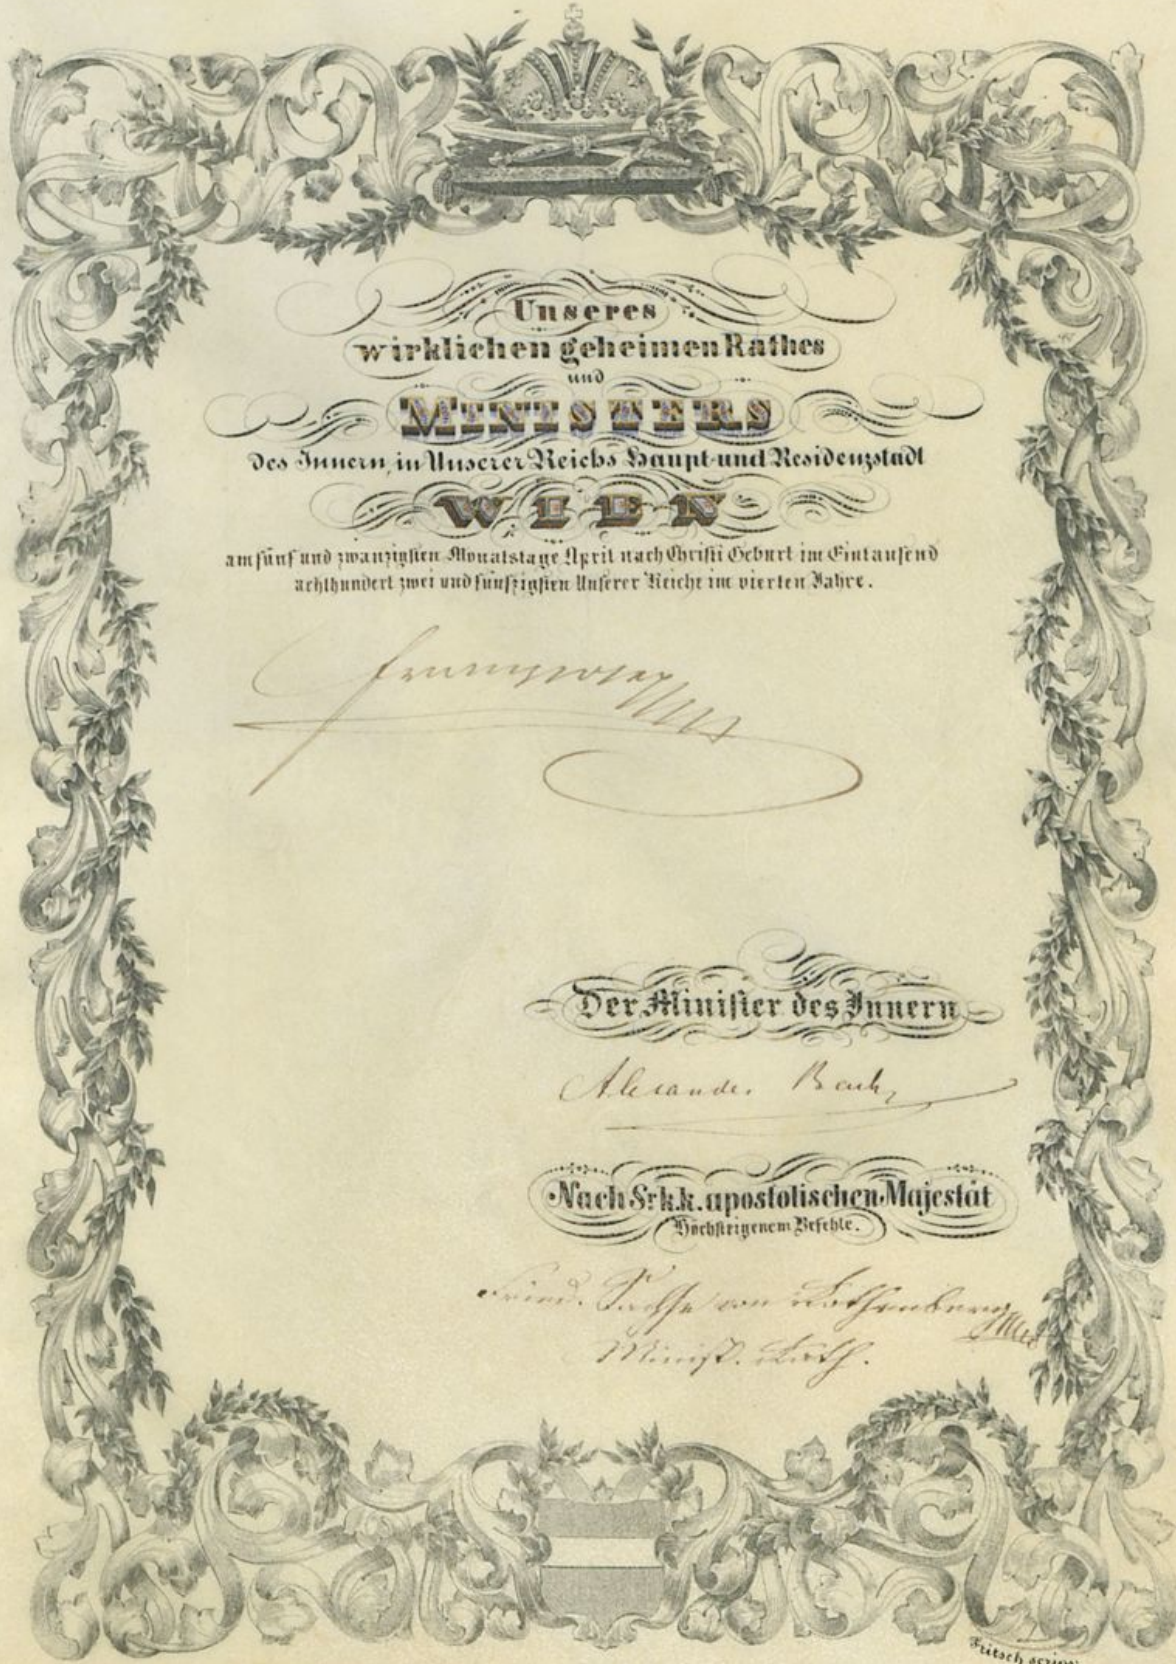 Unseres
wirklichen geheimen Rathes
und
MINISTERS
des Innern, in Unserer Reichs Haupt-und Residenzstadt
WIEN
am fünf und zwanzigsten Monatstage April nach Christi Geburt im Eintausend
achthundert zwei und fünfzigsten Unserer Reiche im vierten Jahre.
Franz Joseph
Der Minister des Innern
Alexander Bach
Nach Sr. k. k. apostolischen Majestät
Höchsteigenem Befehle.
Fried. von
Minist. Rath.
Fritsch